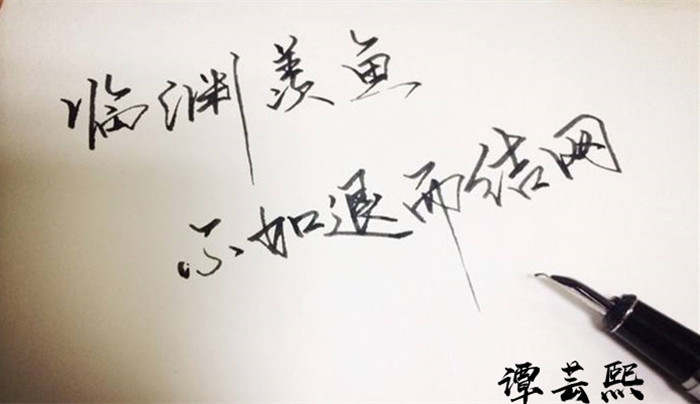 临渊羡鱼
不如退而结网
谭芸熙